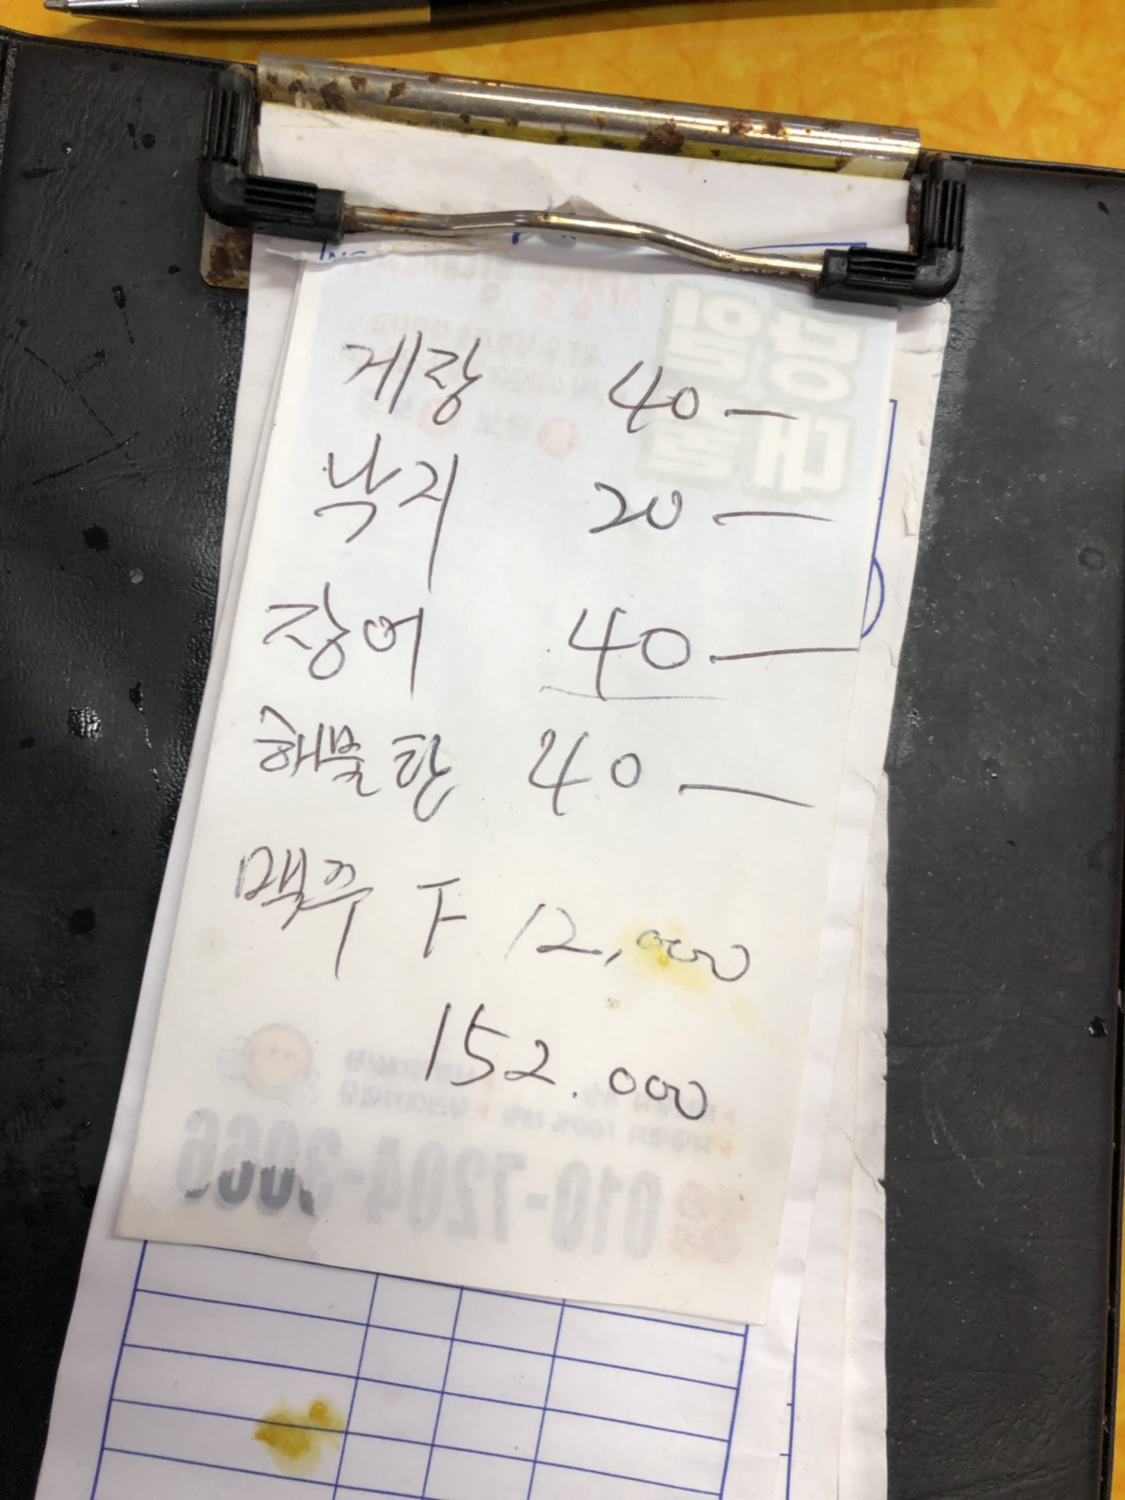 게장 40—
낙지 20—
장어 40—
해물탕 40—
맥주 F 12,000
152.000
010-7204-3066